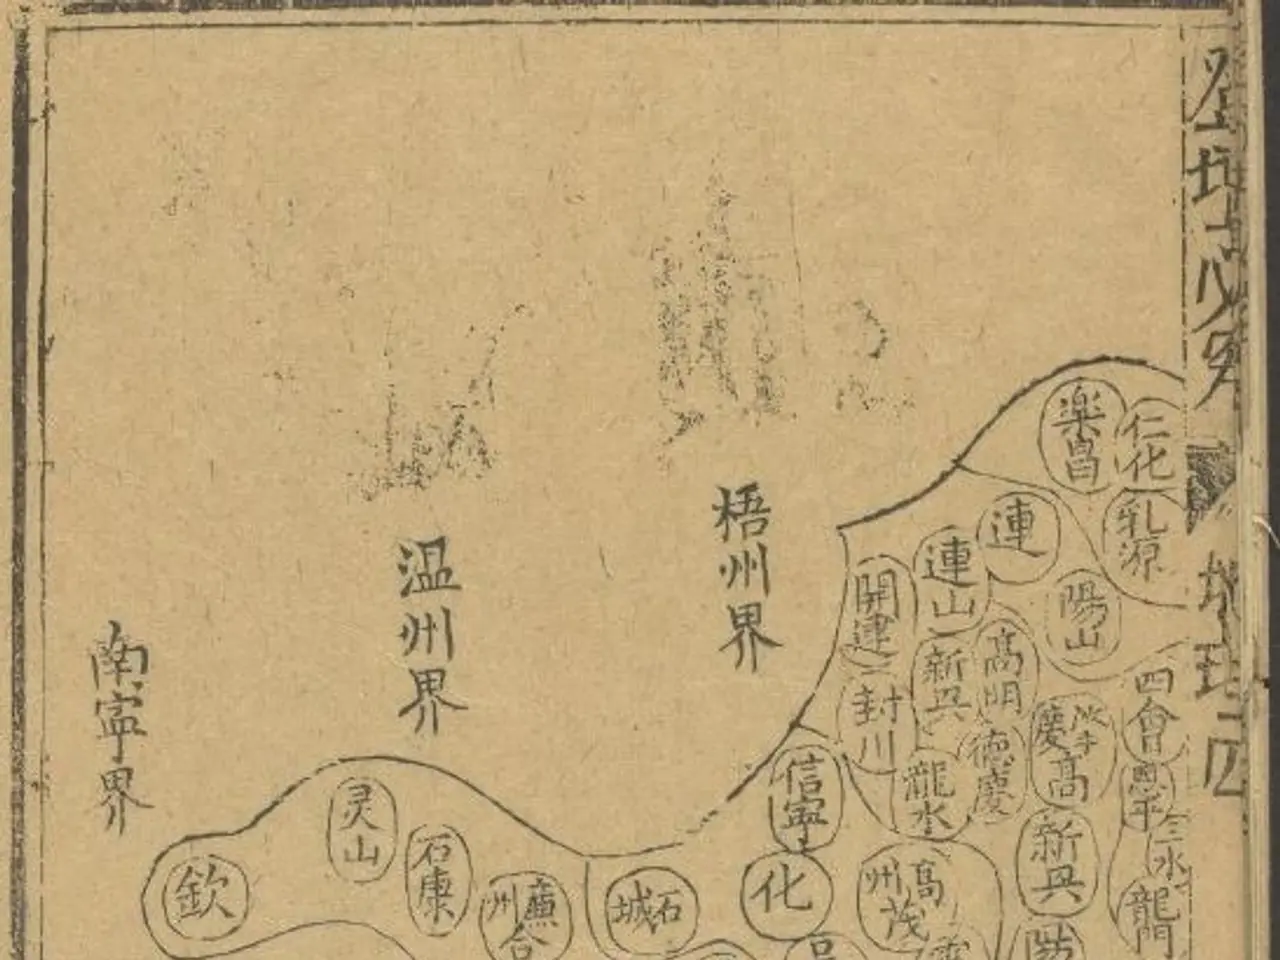 登壇必究
地理四
仁化
楽昌
乳源
連
陽山
連山
開建
高明
新兴
封川
四會
肇
慶
高
德慶
龍水
恩平
三水
龍門
新兴
信寧
化
高
州茂
石
城
梧州界
温州界
南寧界
灵山
石康
廉
州
合
欽